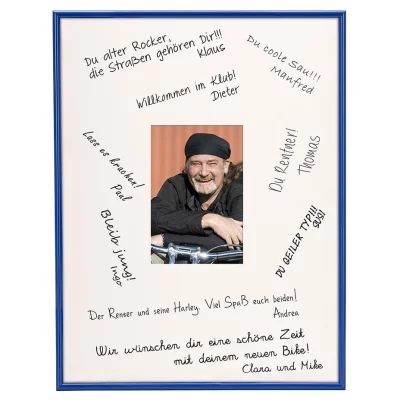 Du alter Rocker,
die Straßen gehören Dir!!!
Klaus
Du coole Sau!!!
Manfred
Willkommen im Klub!
Dieter
Lass es krachen!
Paul
Du Rentner!
Thomas
Bleib jung!
Ingo
DU GEILER TYP!!!
SUSI
Der Renser und seine Harley. Viel Spaß euch beiden!
Andrea
Wir wünschen dir eine schöne Zeit
mit deinem neuen Bike!
Clara und Mike